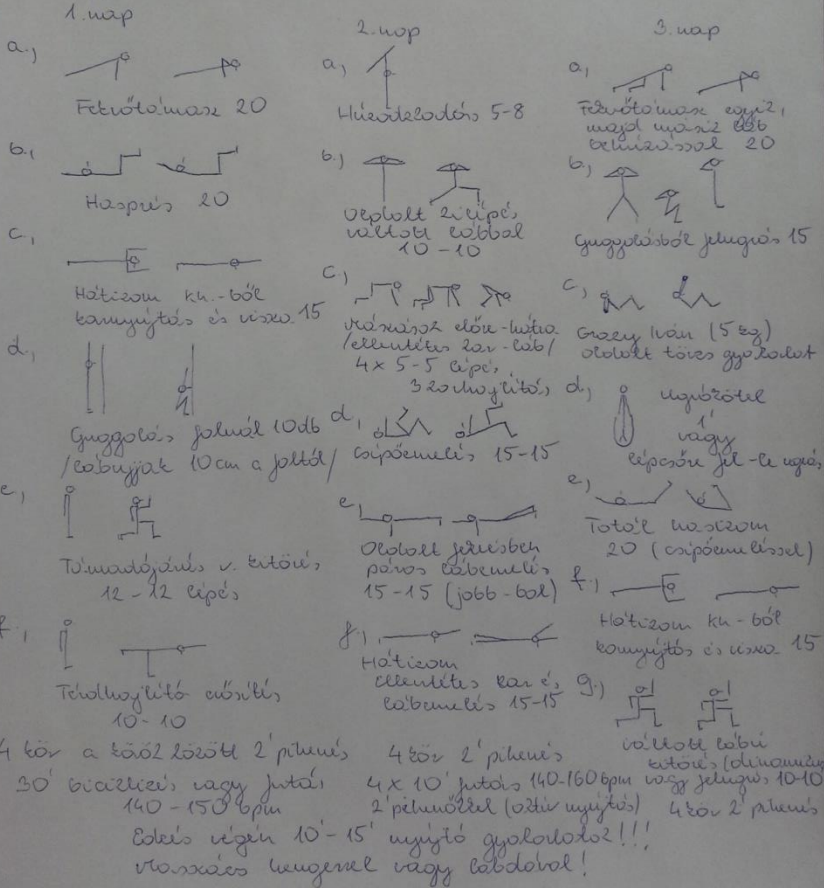 1. nap
a.,
Fekvőtámasz 20
b.,
Hasprés 20
c.,
Hátizom kh.-ból
karnyújtás és vissza 15
d.,
Guggolás falnál 10db
/lábujjak 10cm a faltól/
e.,
Támadójárás v. kitörés
12-12 lépés
f.,
Térdhajlító erősítés
10-10
4 kör a körök között 2' pihenés
30' biciklizés vagy futás
140-150 bpm
2. nap
a.,
Húzódzkodás 5-8
b.,
Oldalt kilépés
váltott lábbal
10-10
c.,
Mászás előre-hátra
/ellentétes kar-láb/
4x 5-5 lépés,
3 karhajlítás
d.,
csípőemelés 15-15
e.,
Oldalt fekvésben
páros lábemelés
15-15 (jobb-bal)
f.,
Hátizom
ellentétes kar és
lábemelés 15-15
4 kör 2' pihenés
4x10' futás 140-160 bpm
2' pihenővel (aztán nyújtás)
3. nap
a.,
Fekvőtámasz egyik,
majd másik láb
behúzással 20
b.,
Guggolásból felugrás 15
c.,
Crazy Iván (5 kg)
oldalt törzs gyakorlat
d.,
ugrókötél
1'
vagy
lépcsőre fel-le ugrás
e.,
Totál hasizom
20 (csípőemeléssel)
f.,
Hátizom kh-ból
karnyújtás és vissza 15
g.,
váltott lábú
kitörés
vagy felugrás 10-10
4 kör 2' pihenés
Edzés végén 10'-15' nyújtó gyakorlatok!!!
Masszázs hengerrel vagy labdával!